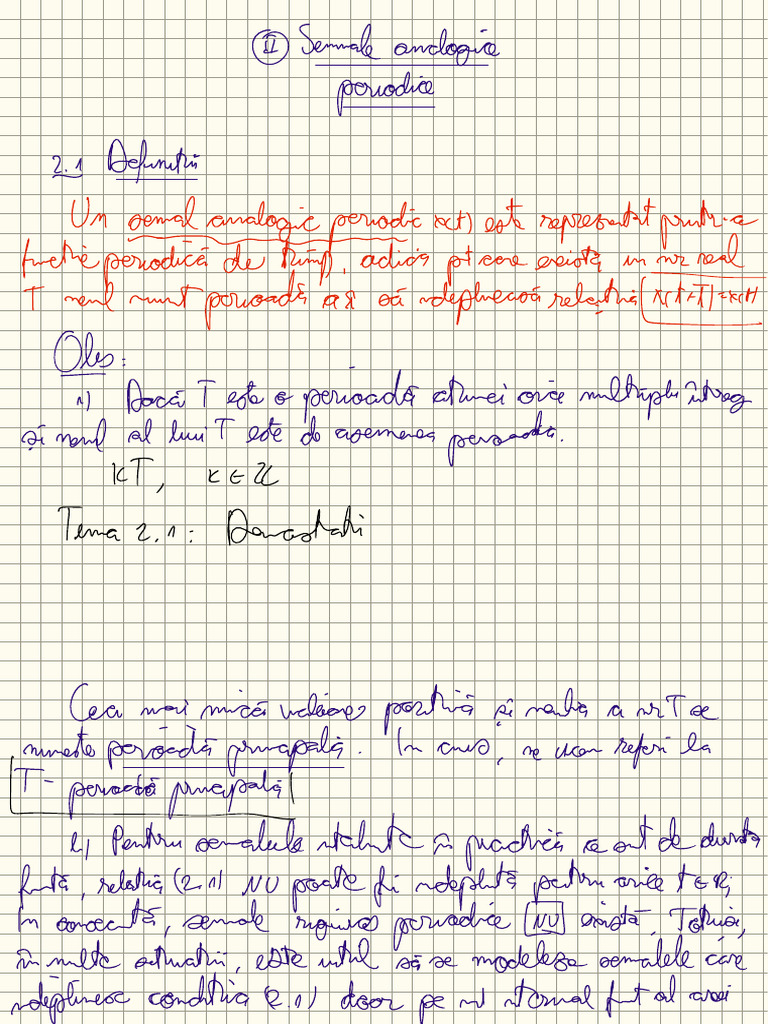 II Semnale analogice
periodice
2.1 Definitii
Un semnal analogic periodic x(t) este reprezentat printr-o
functie periodică de timp, adică pt care există un nr real
T nenul numit perioadă a.î. să îndeplinească relația x(t+T)=x(t)
Obs:
1) Dacă T este o perioadă atunci orice multiplu întreg
și nenul al lui T este de asemenea perioadă.
kT, k∈Z
Tema 2.1: Demonstrati
Cea mai mică valoare pozitivă și nenulă a nr T se
numeste perioadă principală. În curs, ne vom referi la
T - perioadă principală
2) Pentru semnalele în practică ce sunt de durată
finită, relatia (2.1) NU poate fi îndeplinită pentru orice t∈R;
În consecintă, semnale riguros periodice NU există. Totusi,
în multe situatii, este util să se modeleze semnalele care
îndeplinesc conditia (2.1) doar pe un interval finit al axei